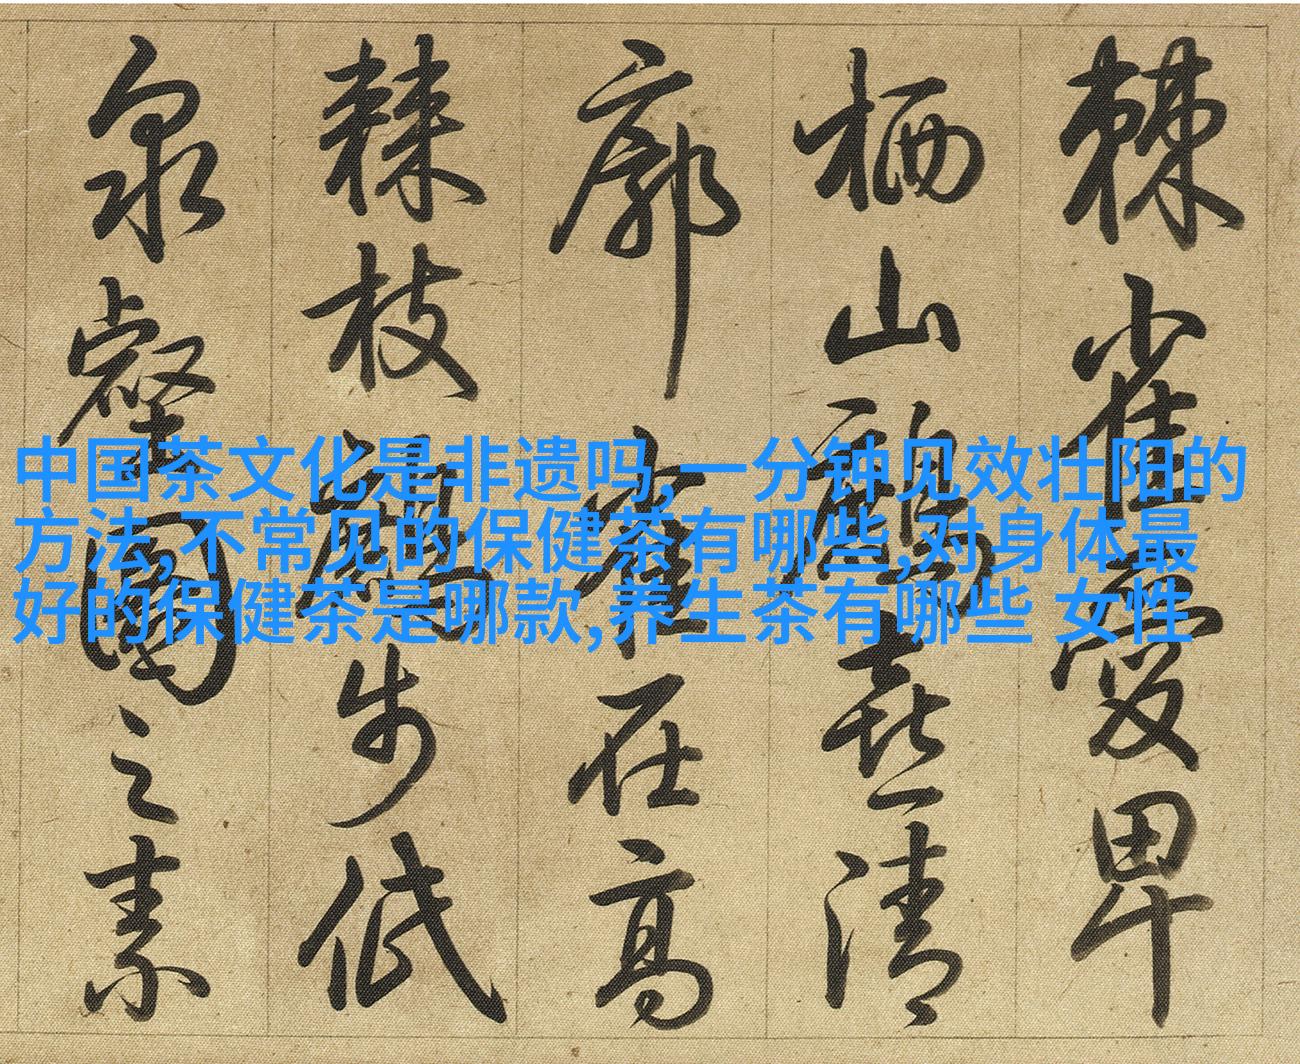 中国茶文化是非遗吗,一分钟见效壮阳的
方法,不常见的保健茶有哪些,对身体最
好的保健茶是哪款,养生茶有哪些 女性
棘雀愛卑
栖山清
廓在高
棘枝步低
泉之素